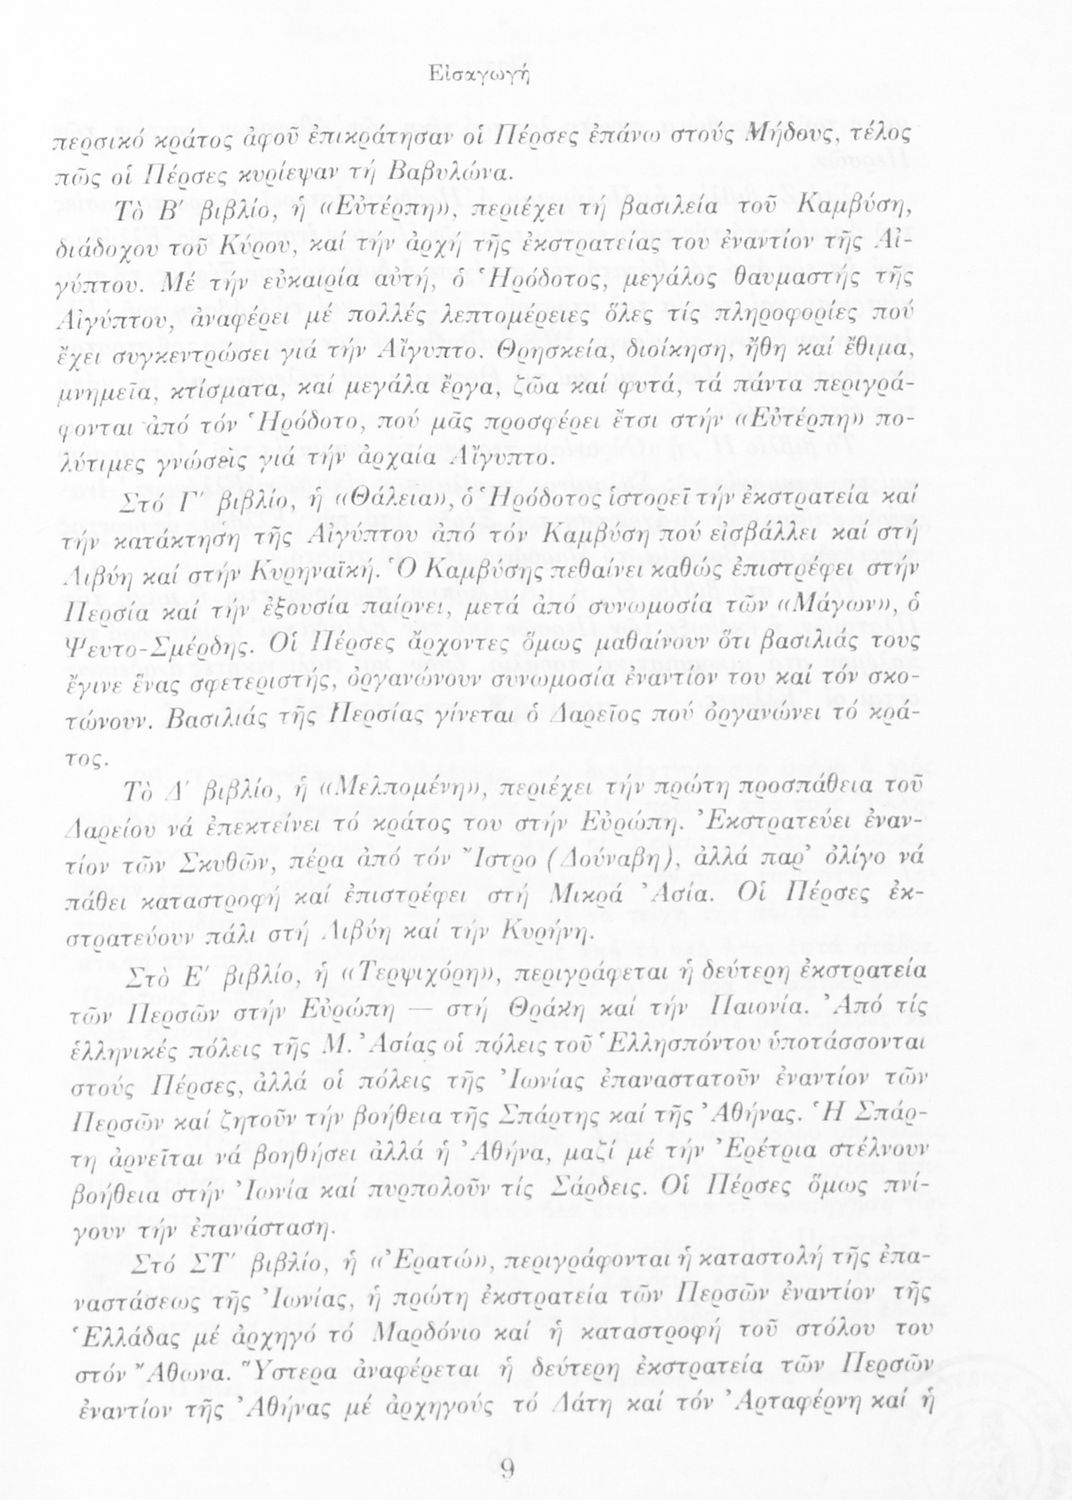 Εἰσαγωγή
περσικό κράτος ἀφοῦ ἐπικράτησαν οἱ Πέρσες ἐπάνω στούς Μήδους, τέλος
πῶς οἱ Πέρσες κυρίεψαν τή Βαβυλώνα.
Τὸ Β′ βιβλίο, ἡ «Εὐτέρπη», περιέχει τή βασιλεία τοῦ Καμβύση,
διάδοχου τοῦ Κύρου, καί τήν ἀρχή τῆς ἐκστρατείας του ἐναντίον τῆς Αἰ-
γύπτου. Μέ τήν εὐκαιρία αὐτή, ὁ Ἡρόδοτος, μεγάλος θαυμαστής τῆς
Αἰγύπτου, ἀναφέρει μέ πολλές λεπτομέρειες ὅλες τίς πληροφορίες πού
ἔχει συγκεντρώσει γιά τήν Αἴγυπτο. Θρησκεία, διοίκηση, ἤθη καί ἔθιμα,
μνημεῖα, κτίσματα, καί μεγάλα ἔργα, ζῶα καί φυτά, τά πάντα περιγρά-
φονται ἀπό τόν Ἡρόδοτο, πού μᾶς προσφέρει ἔτσι στήν «Εὐτέρπη» πο-
λύτιμες γνώσεις γιά τήν ἀρχαία Αἴγυπτο.
Στό Γ′ βιβλίο, ἡ «Θάλεια», ὁ Ἡρόδοτος ἱστορεῖ τήν ἐκστρατεία καί
τήν κατάκτηση τῆς Αἰγύπτου ἀπό τόν Καμβύση πού εἰσβάλλει καί στή
Λιβύη καί στήν Κυρηναϊκή. Ὁ Καμβύσης πεθαίνει καθώς ἐπιστρέφει στήν
Περσία καί τήν ἐξουσία παίρνει, μετά ἀπό συνωμοσία τῶν «Μάγων», ὁ
Ψευτο-Σμέρδης. Οἱ Πέρσες ἄρχοντες ὅμως μαθαίνουν ὅτι βασιλιάς τους
ἔγινε ἕνας σφετεριστής, ὀργανώνουν συνωμοσία ἐναντίον του καί τόν σκο-
τώνουν. Βασιλιάς τῆς Περσίας γίνεται ὁ Δαρεῖος πού ὀργανώνει τό κρά-
τος.
Τὸ Δ′ βιβλίο, ἡ «Μελπομένη», περιέχει τήν πρώτη προσπάθεια τοῦ
Δαρείου νά ἐπεκτείνει τό κράτος του στήν Εὐρώπη. Ἐκστρατεύει ἐναν-
τίον τῶν Σκυθῶν, πέρα ἀπό τόν Ἴστρο (Δούναβη), ἀλλά παρ’ ὀλίγο νά
πάθει καταστροφή καί ἐπιστρέφει στή Μικρά Ἀσία. Οἱ Πέρσες ἐκ-
στρατεύουν πάλι στή Λιβύη καί τήν Κυρήνη.
Στὸ Ε′ βιβλίο, ἡ «Τερψιχόρη», περιγράφεται ἡ δεύτερη ἐκστρατεία
τῶν Περσῶν στήν Εὐρώπη — στή Θράκη καί τήν Παιονία. Ἀπό τίς
ἑλληνικές πόλεις τῆς Μ. Ἀσίας οἱ πόλεις τοῦ Ἑλλησπόντου ὑποτάσσονται
στούς Πέρσες, ἀλλά οἱ πόλεις τῆς Ἰωνίας ἐπαναστατοῦν ἐναντίον τῶν
Περσῶν καί ζητοῦν τήν βοήθεια τῆς Σπάρτης καί τῆς Ἀθήνας. Ἡ Σπάρ-
τη ἀρνεῖται νά βοηθήσει ἀλλά ἡ Ἀθήνα, μαζί μέ τήν Ἐρέτρια στέλνουν
βοήθεια στήν Ἰωνία καί πυρπολοῦν τίς Σάρδεις. Οἱ Πέρσες ὅμως πνί-
γουν τήν ἐπανάσταση.
Στό ΣΤ′ βιβλίο, ἡ «Ἐρατώ», περιγράφονται ἡ καταστολή τῆς ἐπα-
ναστάσεως τῆς Ἰωνίας, ἡ πρώτη ἐκστρατεία τῶν Περσῶν ἐναντίον τῆς
Ἑλλάδας μέ ἀρχηγό τό Μαρδόνιο καί ἡ καταστροφή τοῦ στόλου του
στόν Ἄθωνα. Ὕστερα ἀναφέρεται ἡ δεύτερη ἐκστρατεία τῶν Περσῶν
ἐναντίον τῆς Ἀθήνας μέ ἀρχηγούς τό Δάτη καί τόν Ἀρταφέρνη καί ἡ
9